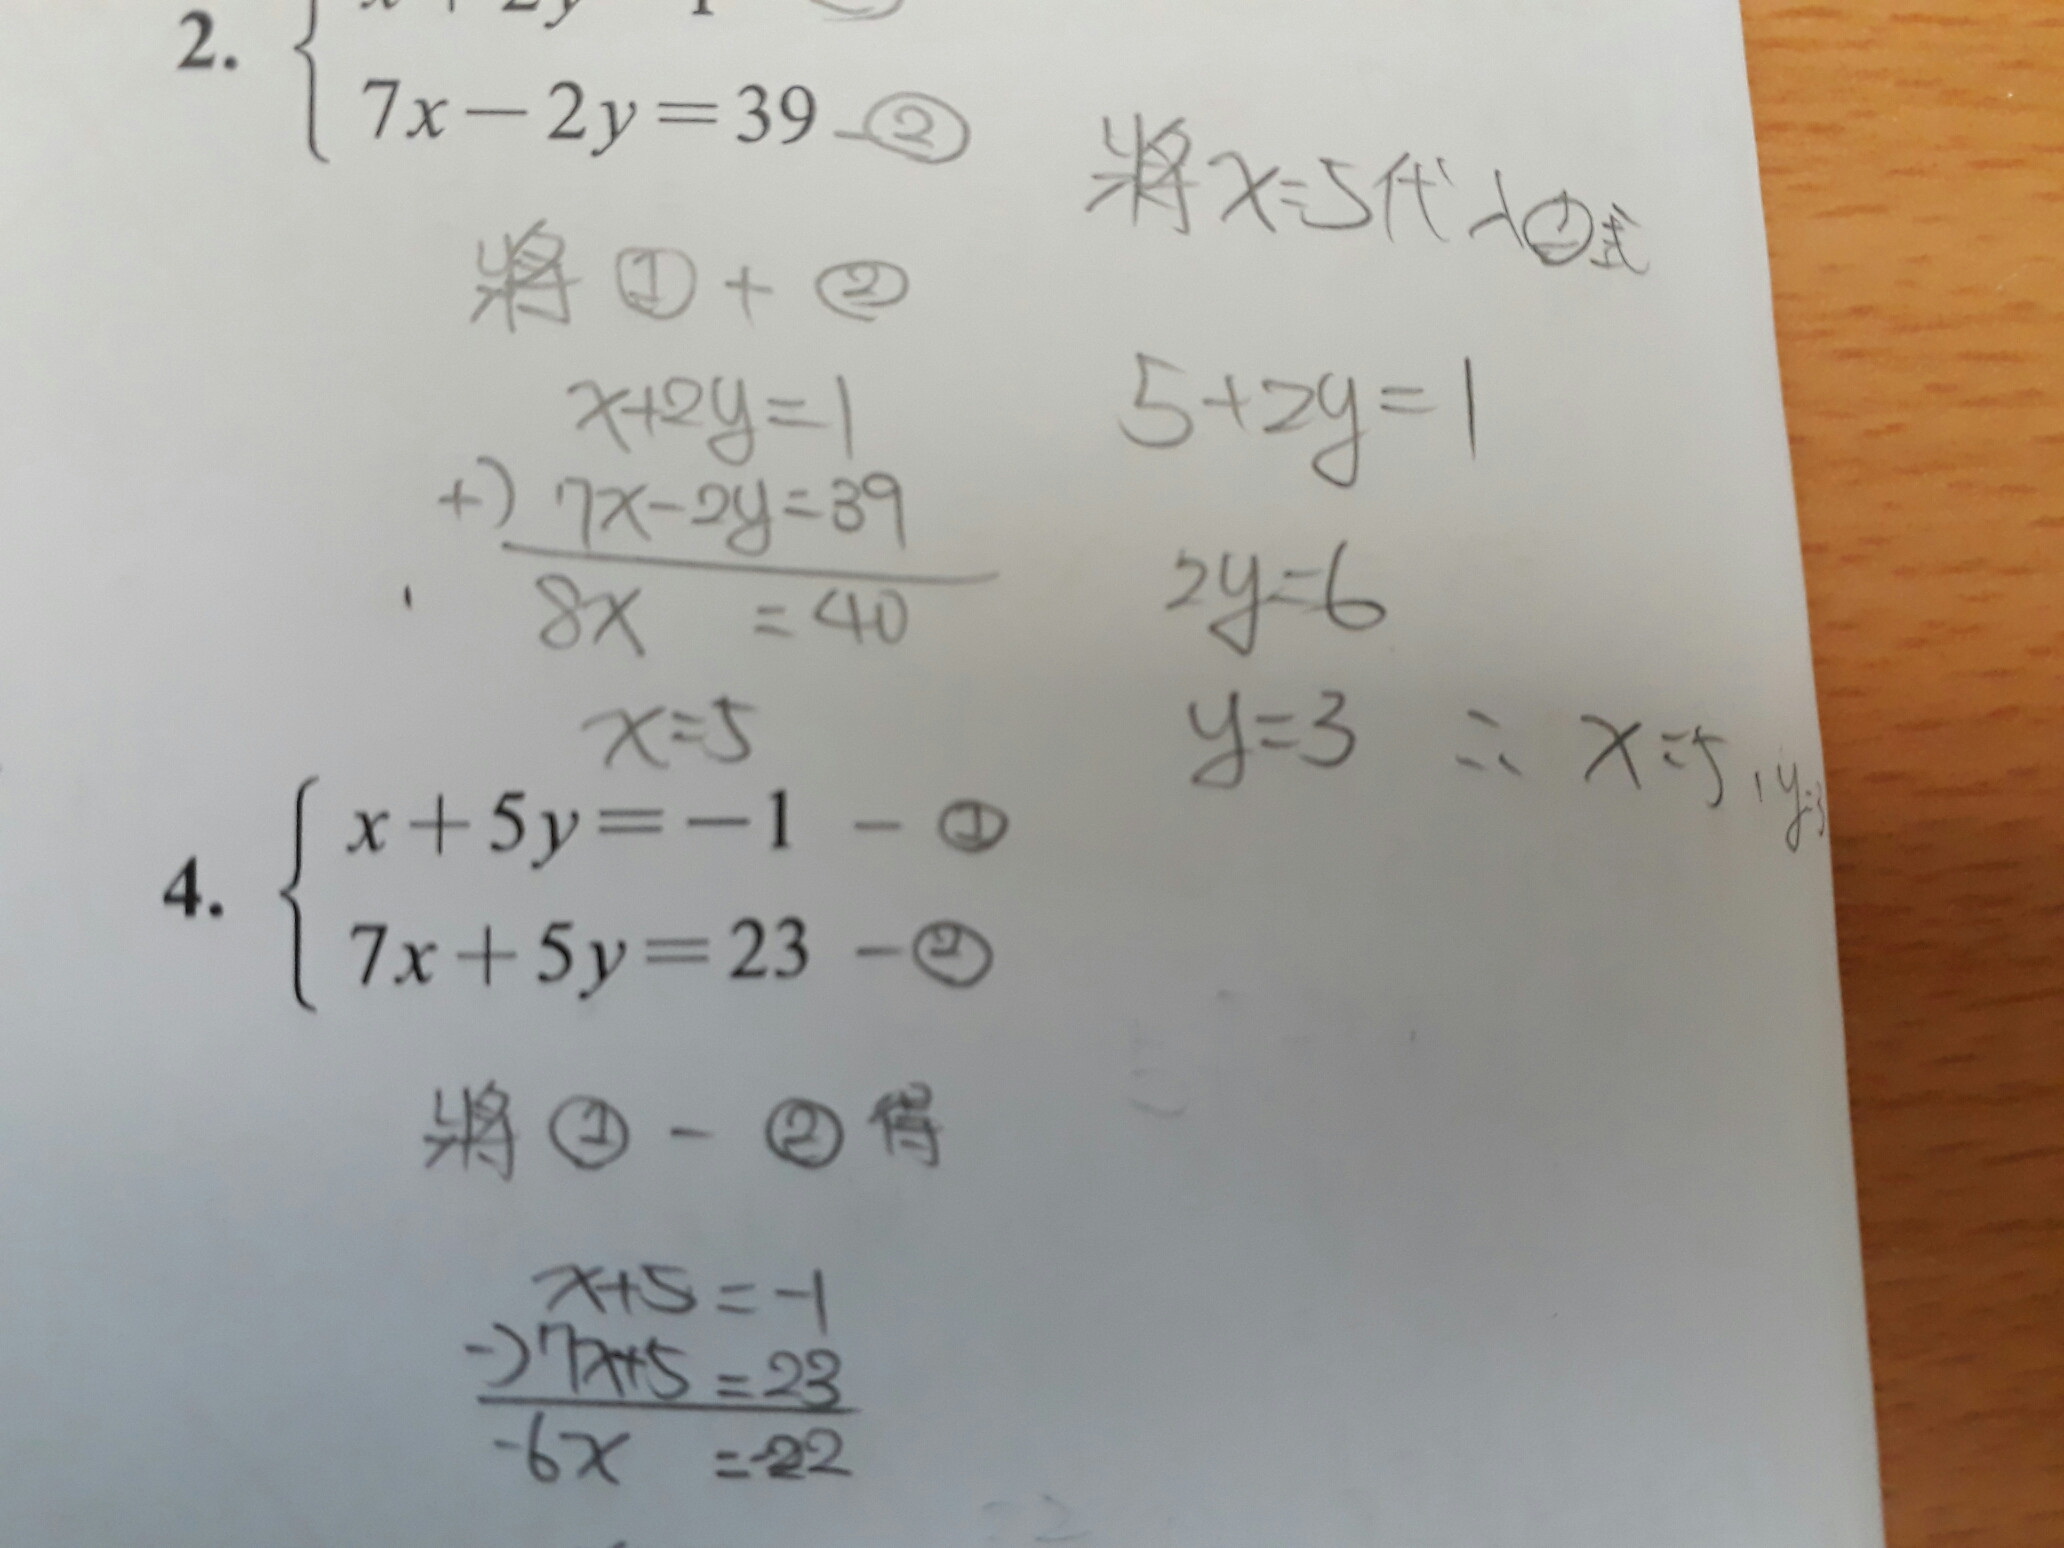 2.
x+2y=1
7x-2y=39 -②
將①+②
x+2y=1
+) 7x-2y=39
8x =40
x=5
將x=5代入①式
5+2y=1
2y=6
y=3 ∴ x=5,y=3
4.
x+5y=-1 -①
7x+5y=23 -②
將①-②得
x+5=-1
-)7x+5=23
-6x =-22